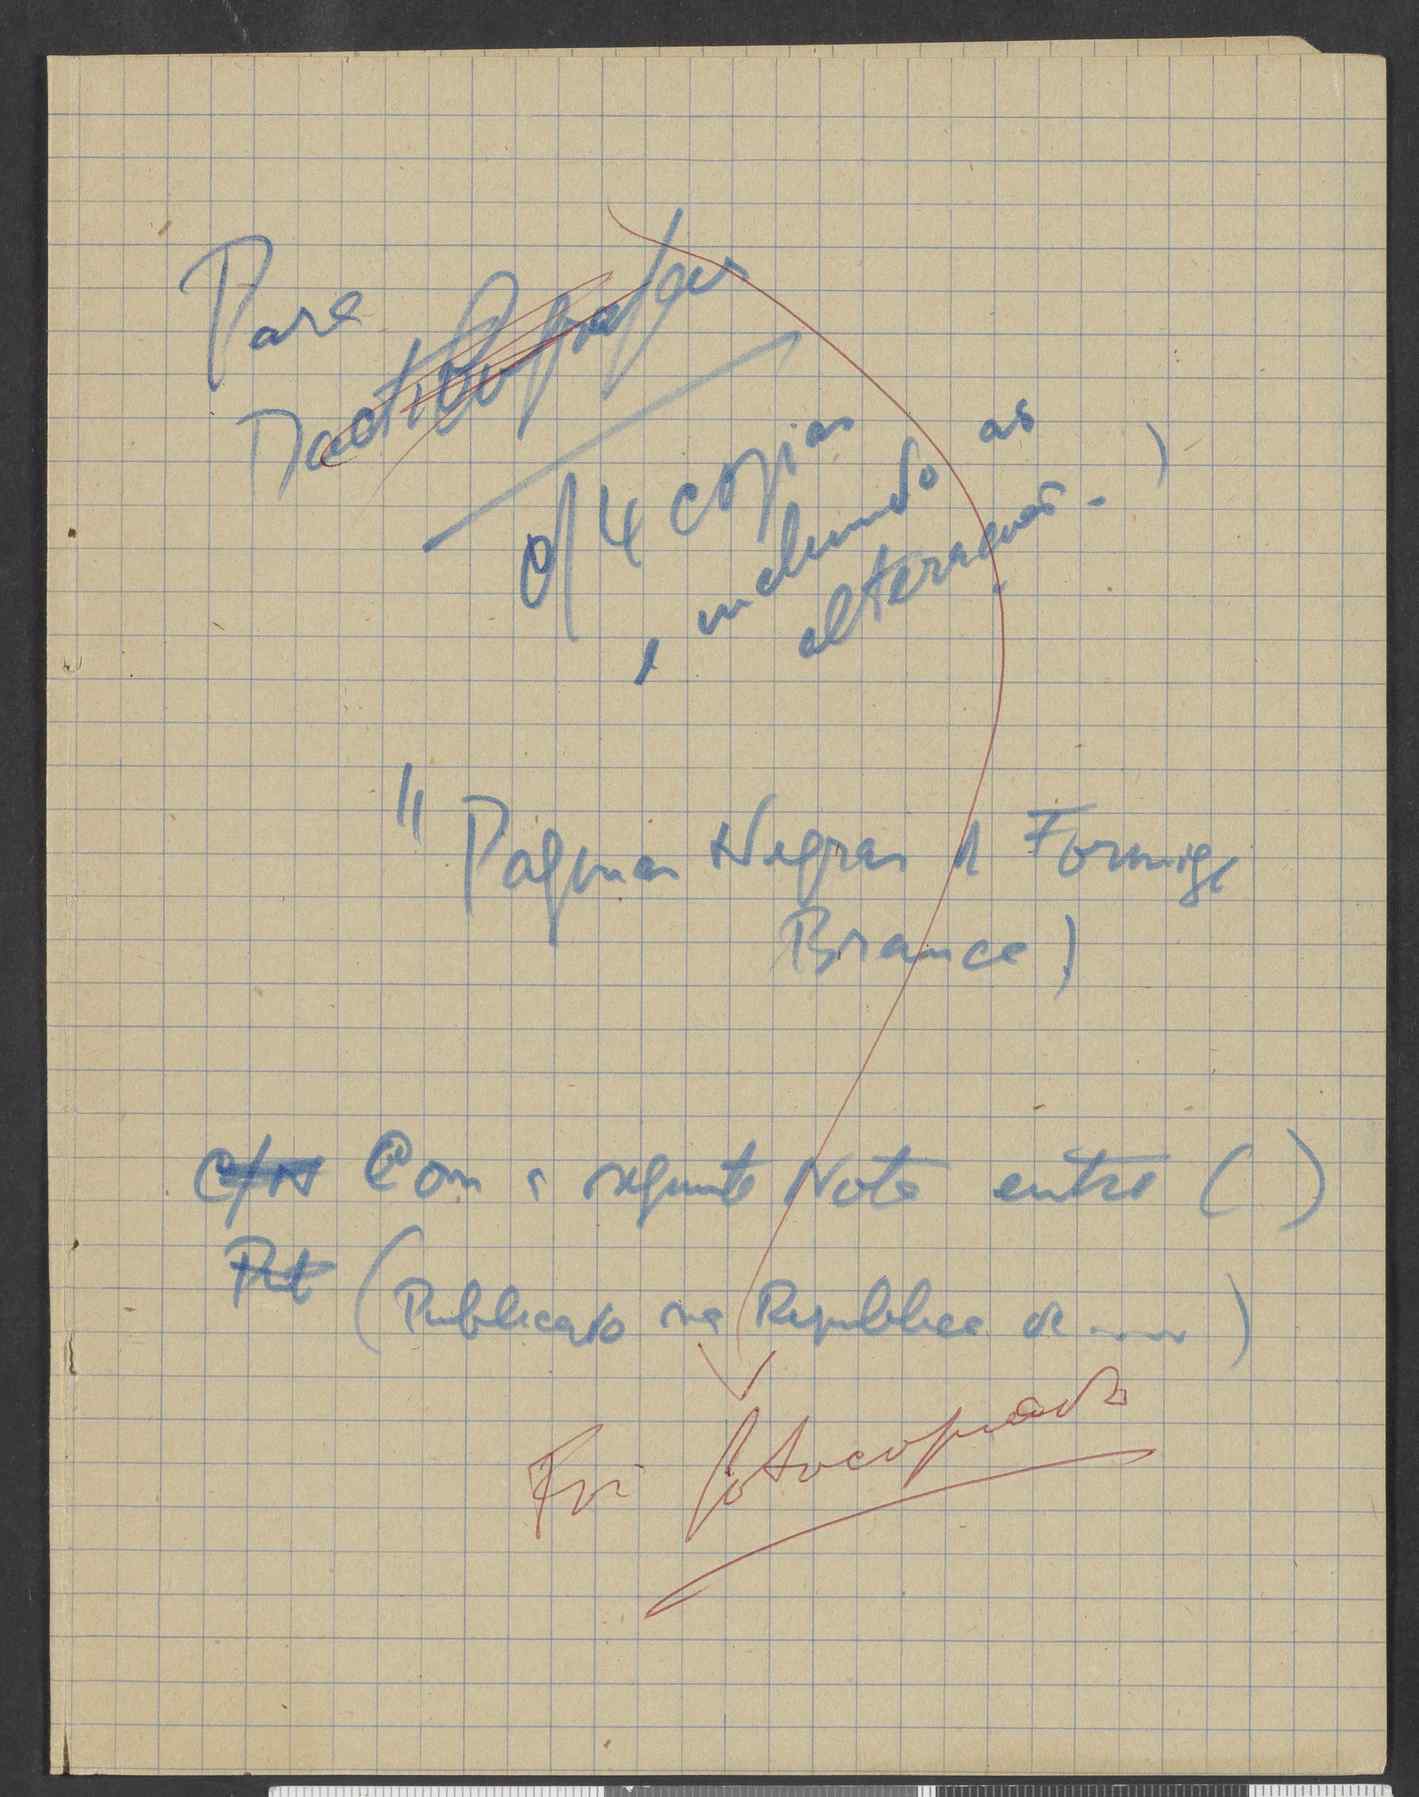 Para
Dactilografar
c/ 4 copias
, incluindo as
alterações - )
" Paginas Negras d Formiga
Branca )
c/ Com a seguinte Nota entre ( )
Put (Publicado na Republica de ..... )
Foi fotocopiado